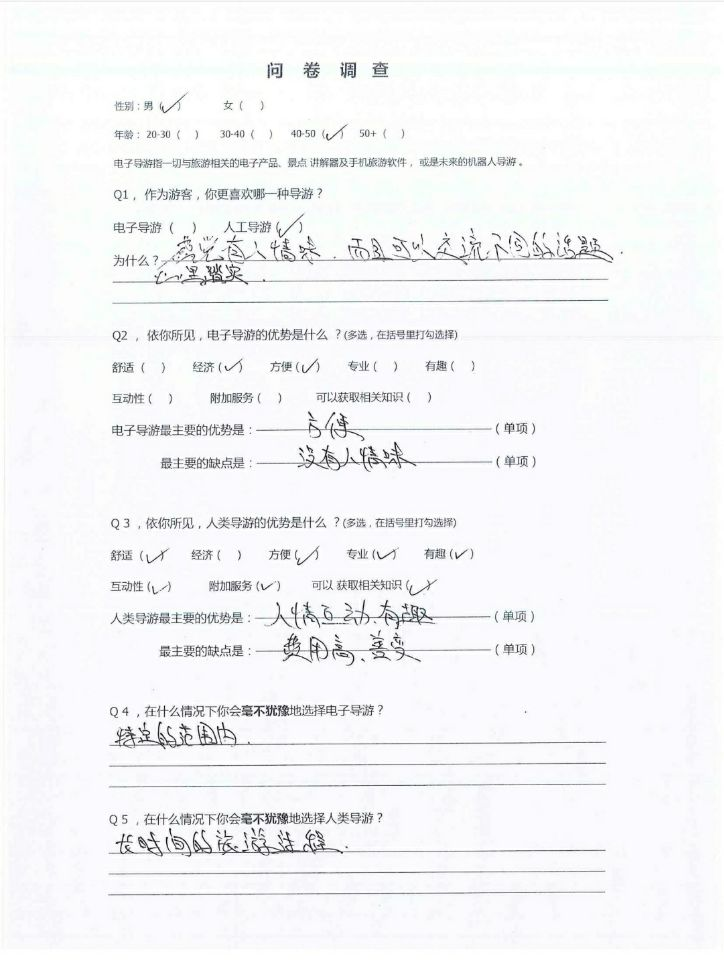 问 卷 调 查
性别：男（✓） 女（ ）
年龄： 20-30（ ） 30-40（ ） 40-50（✓） 50+（ ）
电子导游指一切与旅游相关的电子产品、景点 讲解器及手机旅游软件， 或是未来的机器人导游 。
Q1， 作为游客，你更喜欢哪一种导游？
电子导游（ ） 人工导游（✓）
为什么？感觉有人情味．而且可以交流不同的话题．
心里踏实．
Q2 ， 依你所见，电子导游的优势是什么 ？(多选，在括号里打勾选择)
舒适（ ） 经济（✓） 方便（✓） 专业（ ） 有趣（ ）
互动性（ ） 附加服务（ ） 可以获取相关知识（ ）
电子导游最主要的优势是：方便（单项）
最主要的缺点是：没有人情味（单项）
Q 3 ，依你所见，人类导游的优势是什么 ？(多选，在括号里打勾选择)
舒适（✓） 经济（ ） 方便（✓） 专业（✓） 有趣（✓）
互动性（✓） 附加服务（✓） 可以 获取相关知识（✓）
人类导游最主要的优势是：人情互动、有趣（单项）
最主要的缺点是：费用高、善变（单项）
Q 4 ，在什么情况下你会毫不犹豫地选择电子导游？
特定的范围内．
Q 5 ，在什么情况下你会毫不犹豫地选择人类导游？
长时间的旅游